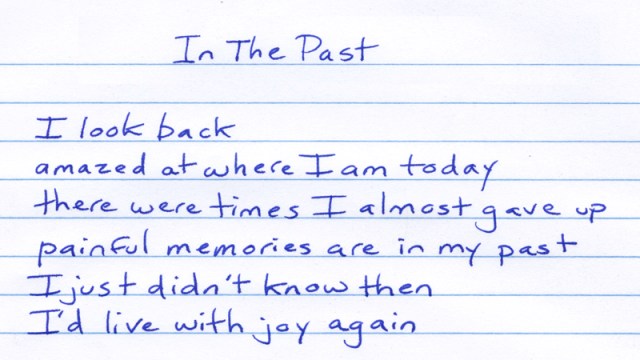 In The Past
I look back
amazed at where I am today
there were times I almost gave up
painful memories are in my past
I just didn't know then
I'd live with joy again